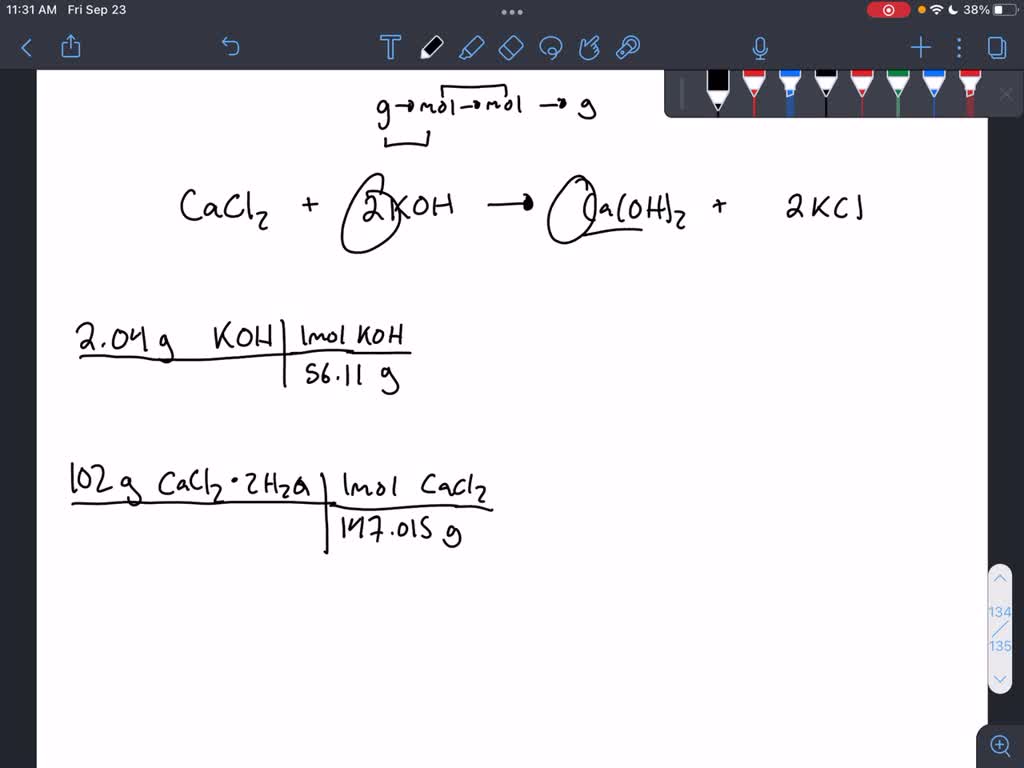 11:31 AM Fri Sep 23
38%
g → mol → mol → g
CaCl₂ + 2KOH → Ca(OH)₂ + 2KCl
2.04 g KOH | 1mol KOH
56.11 g
102 g CaCl₂ · 2H₂O | 1mol CaCl₂
147.015 g
134
135